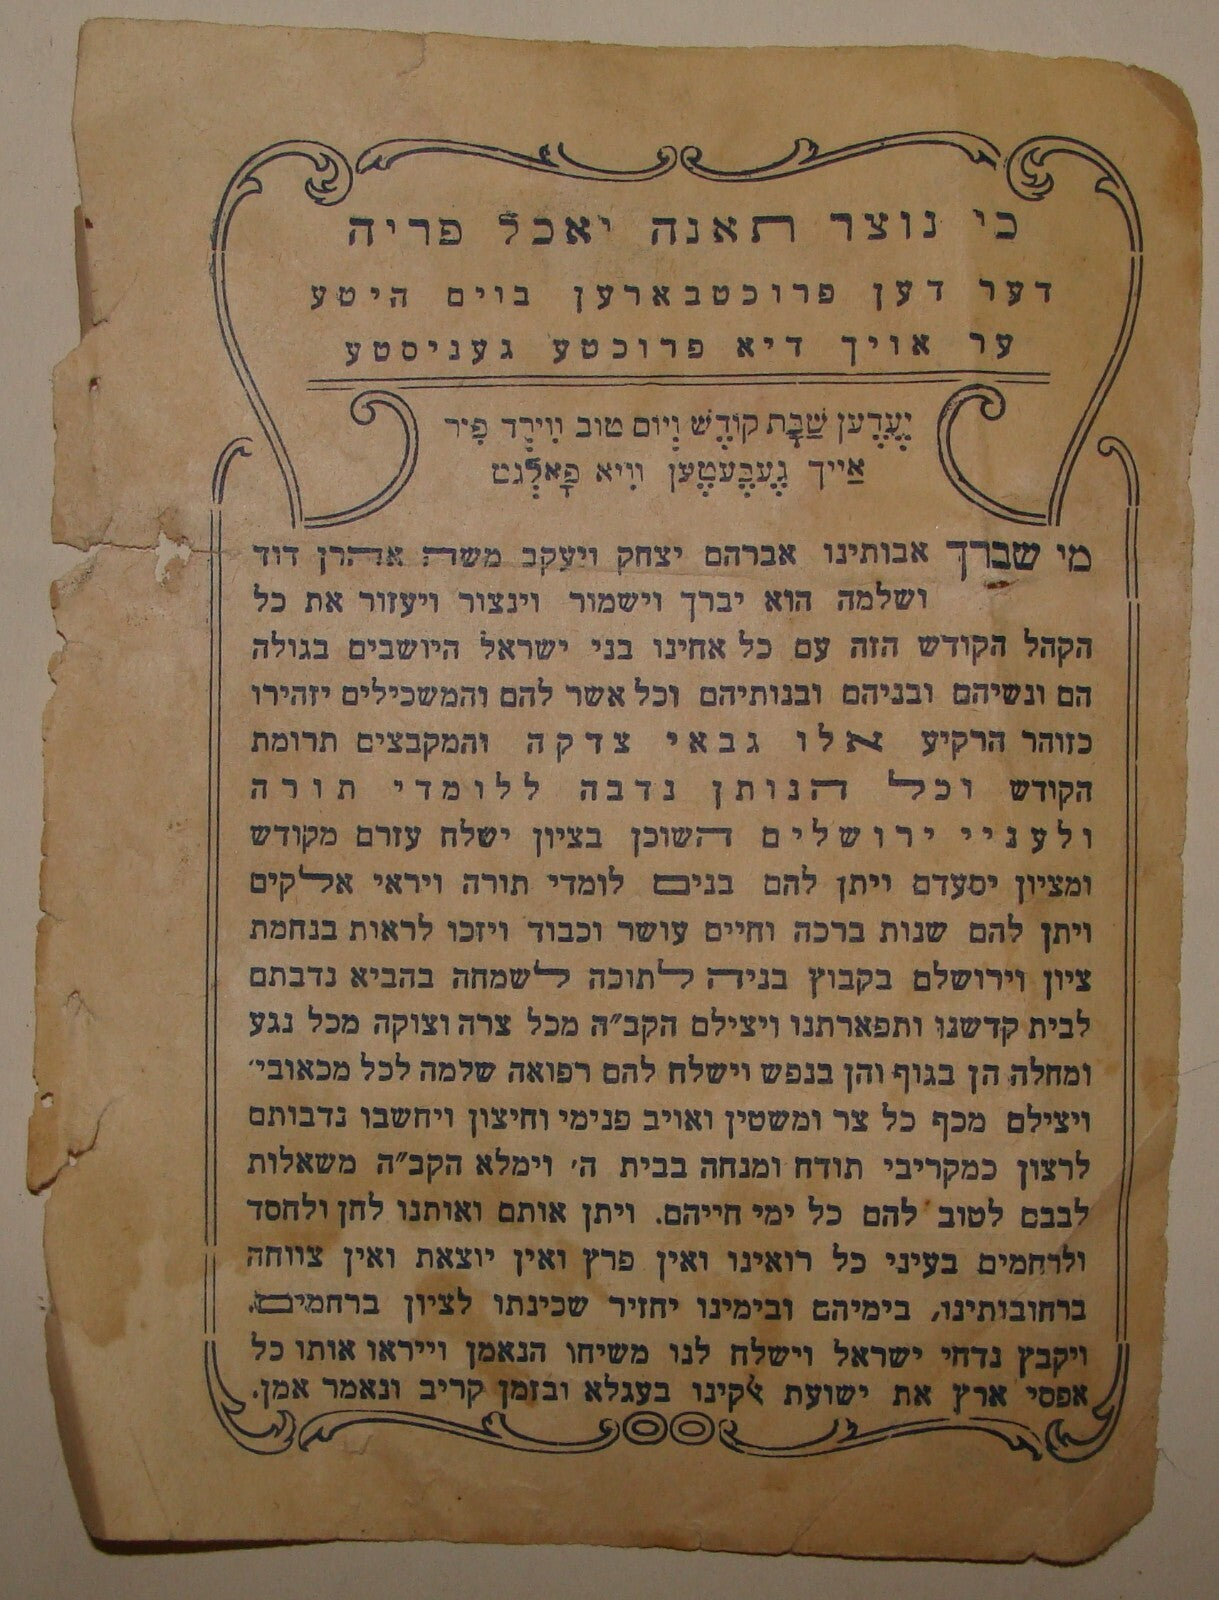 כי נוצר תאנה יאכל פריה
דער דען פרוכטבארען בוים היטע
ער אויך דיא פרוכטע געניסטע
יֶעדֶען שַׁבָּת קוֹדֶשׁ וְיוֹם טוב ווִירְד פִיר
אַייך גֶעבֶּעטֶען ווִיא פָאלְגט
מי שברך אבותינו אברהם יצחק ויעקב משה אהרן דוד
ושלמה הוא יברך וישמור וינצור ויעזור את כל
הקהל הקודש הזה עם כל אחינו בני ישראל היושבים בגולה
הם ונשיהם ובניהם ובנותיהם וכל אשר להם והמשכילים יזהירו
כזוהר הרקיע אלו גבאי צדקה והמקבצים תרומת
הקודש וכל הנותן נדבה ללומדי תורה
ולעניי ירושלים השוכן בציון ישלח עזרם מקודש
ומציון יסעדם ויתן להם בנים לומדי תורה ויראי אלקים
ויתן להם שנות ברכה וחיים עושר וכבוד ויזכו לראות בנחמת
ציון וירושלם בקבוץ בניה לתוכה לשמחה בהביא נדבתם
לבית קדשנו ותפארתנו ויצילם הקב״ה מכל צרה וצוקה מכל נגע
ומחלה הן בגוף והן בנפש וישלח להם רפואה שלמה לכל מכאובי׳
ויצילם מכף כל צר ומשטין ואויב פנימי וחיצון ויחשבו נדבותם
לרצון כמקריבי תודח ומנחה בבית ה׳ וימלא הקב״ה משאלות
לבבם לטוב להם כל ימי חייהם. ויתן אותם ואותנו לחן ולחסד
ולרחמים בעיני כל רואינו ואין פרץ ואין יוצאת ואין צווחה
ברחובותינו, בימיהם ובימינו יחזיר שכינתו לציון ברחמים.
ויקבץ נדחי ישראל וישלח לנו משיחו הנאמן וייראו אותו כל
אפסי ארץ את ישועת אלקינו בעגלא ובזמן קריב ונאמר אמן.